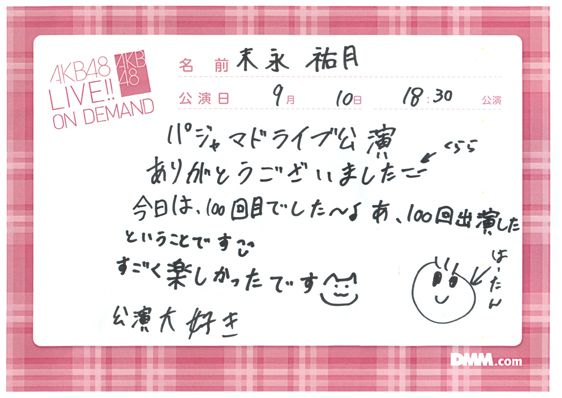 AKB48
LIVE!!
ON DEMAND
AKB
48
名前 末永 祐月
公演日 9月 10日 18:30 公演
パジャマドライブ公演
ありがとうございました
くらら
今日は、100回目でした〜♪ あ、100回出演した
ということです
すごく楽しかったです
ばーたん
公演大好き
DMM.com